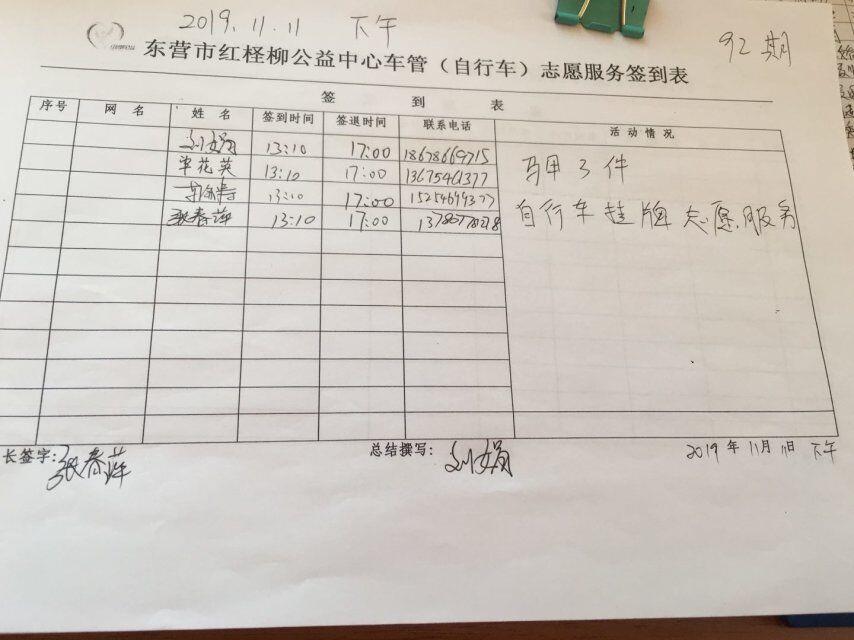 2019.11.11 下午
92期
东营市红柽柳公益中心车管（自行车）志愿服务签到表
签 到 表
序号 网 名 姓 名 签到时间 签退时间 联系电话 活 动 情 况
刘娟 13:10 17:00 18678669715
单花英 13:10 17:00 13675461377
13:10 17:00
张春萍 13:10 17:00
马甲3件
自行车挂牌志愿服务
长签字: 张春萍 总结撰写: 刘娟 2019年11月11日 下午